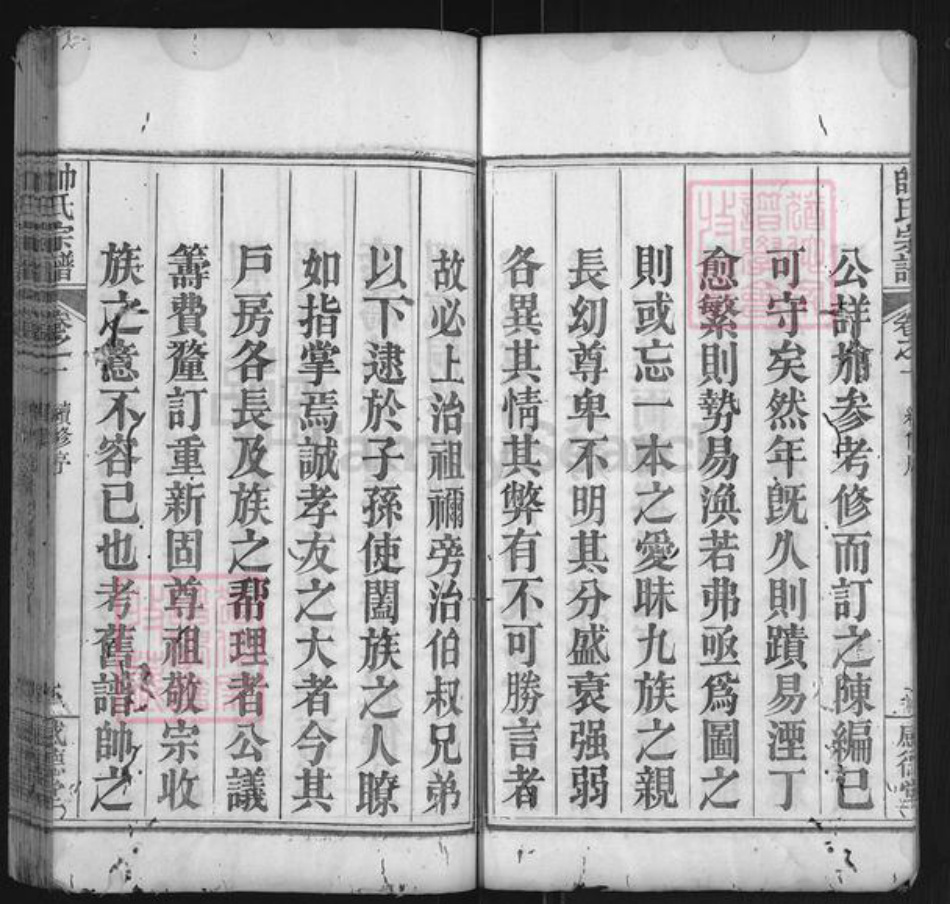 公詳爲參考修而訂之陳編已
可守矣然年既久則蹟易湮丁
愈繁則勢易渙若弗亟爲圖之
則或忘一本之愛昧九族之親
長幼尊卑不明其分盛衰强弱
各異其情其弊有不可勝言者
故必上治祖禰旁治伯叔兄弟
以下逮於子孫使闔族之人瞭
如指掌焉誠孝友之大者今其
戶房各長及族之幫理者公議
籌費釐訂重新固尊祖敬宗收
族之意不容已也考舊譜帥之
帥氏宗譜
卷之一
續修序